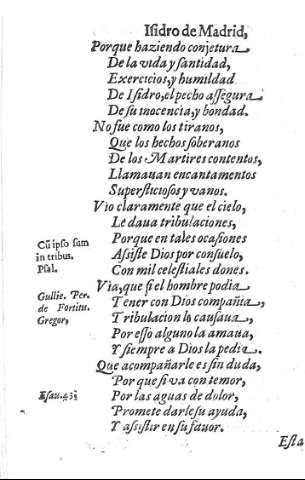 Isidro de Madrid,
Porque haziendo conjetura
De la vida y santidad,
Exercicios, y humildad
De Isidro, el pecho assegura
De su inocencia, y bondad.
No fue como los tiranos,
Que los hechos soberanos
De los Martires contentos,
Llamauan encantamentos
Superstictosos y vanos.
Vio claramente que el cielo,
Le daua tribulaciones,
Porque en tales ocasiones
Assiste Dios por consuelo,
Con mil celestiales dones.
Via, que si el hombre podia
Tener con Dios compañia,
Tribulacion la causaua,
Por esso alguno la amaua,
Y siempre a Dios la pedia.
Que acompañarle es sin duda,
Por que si va con temor,
Por las aguas de dolor,
Promete darle su ayuda,
Y assistir en su fauor.
Esta
Cũ ipso sum
in tribus.
Psal.
Gullie. Per.
de Fortitu.
Gregor,
Esau. 43